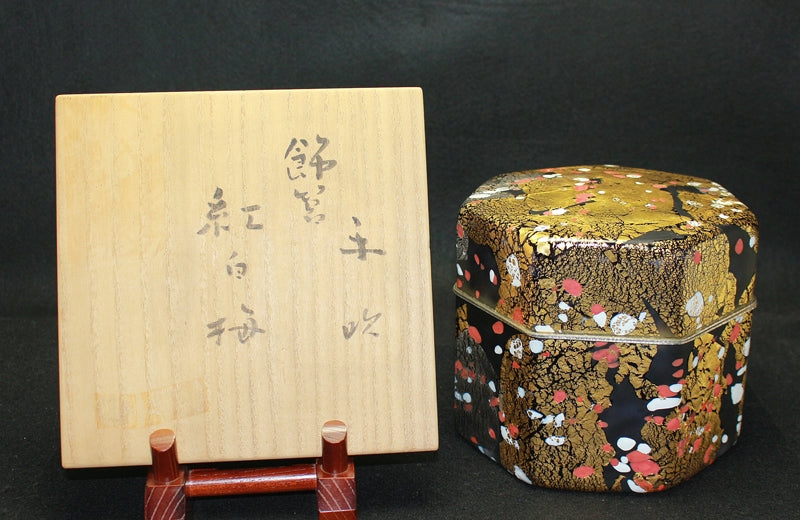 飾筥
紅白梅
吹